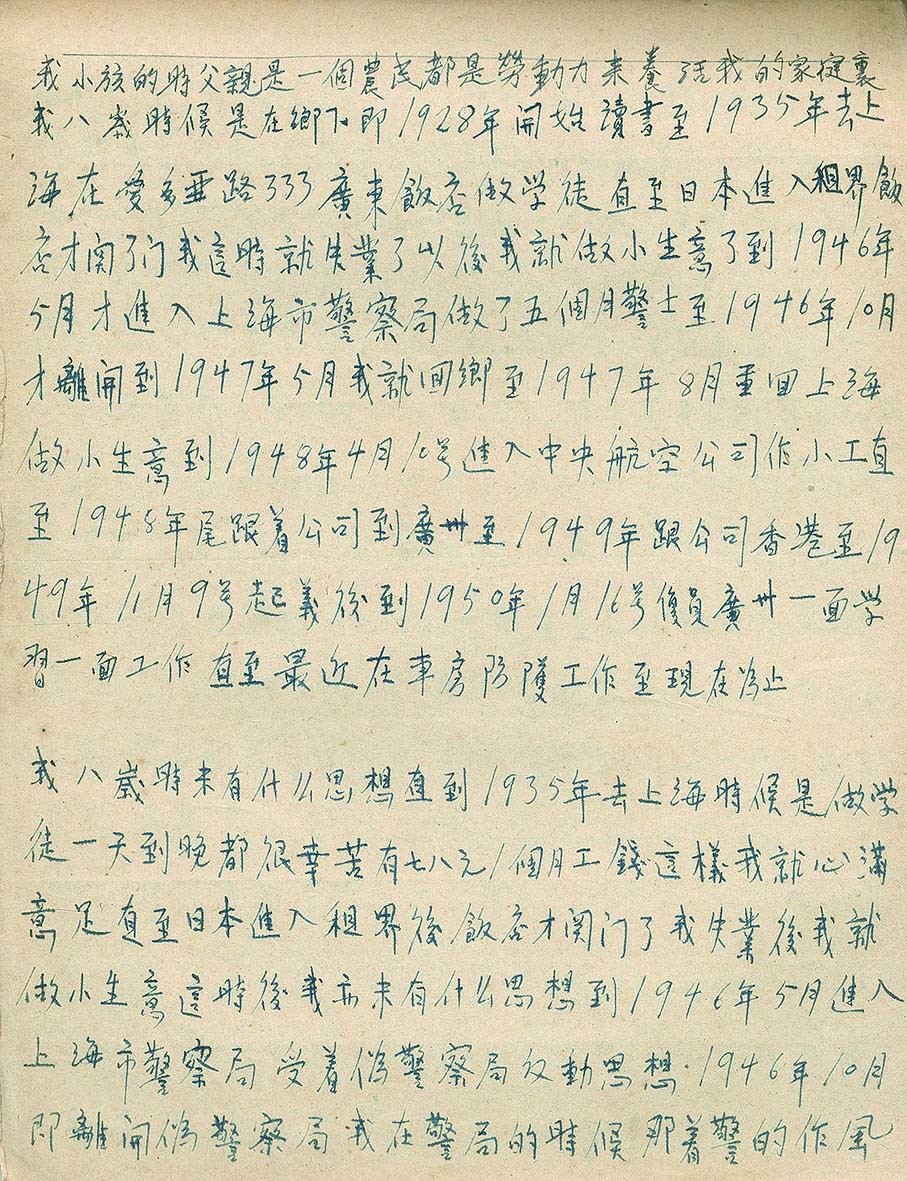 我小孩的時父親是一個農民都是勞動力来養活我的家庭裏
我八歲時候是在鄉下即1928年開始讀書至1935年去上
海在愛多亜路333廣東飯店做学徒直至日本進入租界飯
店才関了门我這時就失業了以後我就做小生意了到1946年
5月才進入上海市警察局做了五個月警士至1946年10月
才離開到1947年5月我就回鄉至1947年8月重回上海
做小生意到1948年4月10号進入中央航空公司作小工直
至1948年尾跟着公司到廣州至1949年跟公司香港至19
49年11月9号起義後到1950年1月16号復員廣州一面学
習一面工作直至最近在車房防護工作至現在為止
我八歲時未有什么思想直到1935年去上海時候是做学
徒一天到晚都很辛苦有七八元1個月工錢這樣我就心满
意足直至日本進入租界後飯店才関门了我失業後我就
做小生意這時後我亦未有什么思想到1946年5月進入
上海市警察局受着偽警察局反動思想.1946年10月
即離開偽警察局我在警局的時候那着警的作風